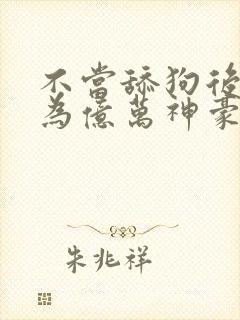 不當舔狗後
為億萬神豪
朱兆祥